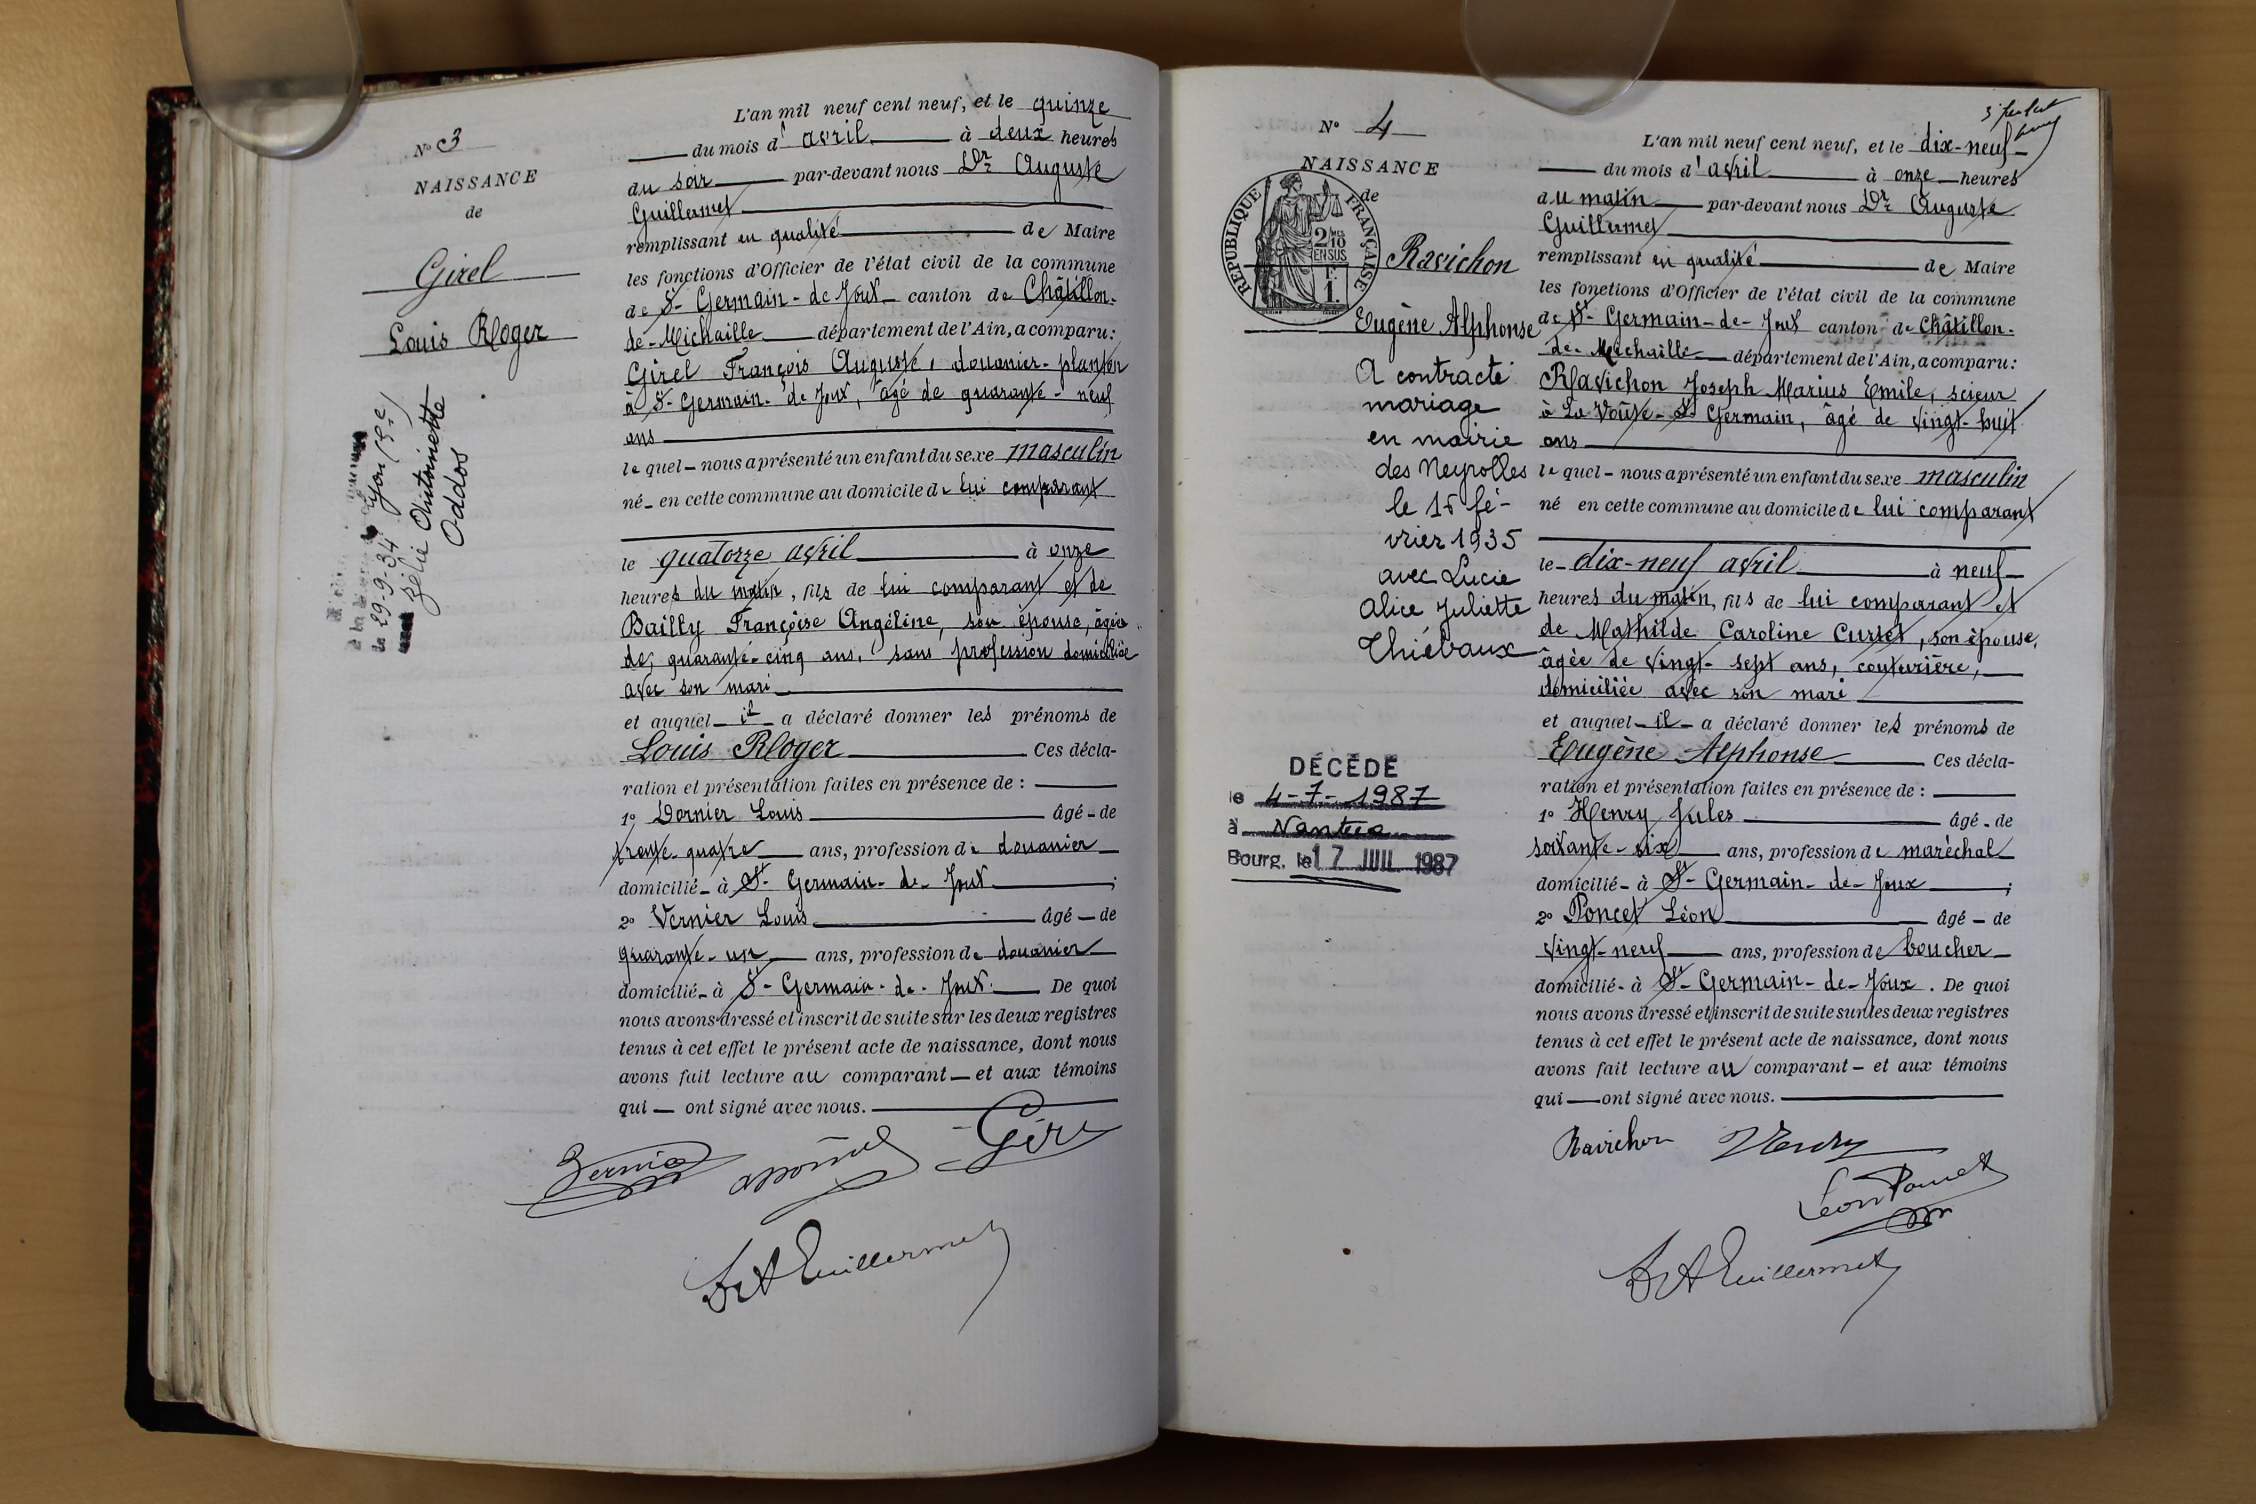 N° 3
NAISSANCE
de
Girel
Louis Roger
Lyon (5e)
29-9-34
Zélie Antoinette
Oddos
L'an mil neuf cent neuf, et le quinze
du mois d'avril à deux heures
du soir par-devant nous Dr Auguste
Guillermet
remplissant en qualité de Maire
les fonctions d'Officier de l'état civil de la commune
de St-Germain-de-Joux canton de Châtillon-
de-Michaille département de l'Ain, a comparu:
Girel François Auguste, douanier-planton
à St-Germain-de Joux, âgé de quarante-neuf
ans
lequel-nous a présenté un enfant du sexe masculin
né-en cette commune au domicile de lui comparant
le quatorze avril à onze
heures du matin, fils de lui comparant et de
Bailly Françoise Angéline, son épouse, âgée
de quarante-cinq ans, sans profession domiciliée
avec son mari
et auquel il a déclaré donner les prénoms de
Louis Roger Ces décla-
ration et présentation faites en présence de :
1° Dornier Louis âgé-de
trente-quatre ans, profession de douanier
domicilié-à St-Germain-de-Joux ;
2° Vernier Louis âgé-de
quarante-un ans, profession de douanier
domicilié-à St-Germain-de-Joux. De quoi
nous avons dressé et inscrit de suite sur les deux registres
tenus à cet effet le présent acte de naissance, dont nous
avons fait lecture au comparant-et aux témoins
qui-ont signé avec nous.
Vernier
Dr A Guillermet
N° 4
NAISSANCE
de
REPUBLIQUE FRANÇAISE
2/10
EN SUS
1 F.
Ravichon
Eugène Alphonse
A contracté
mariage
en mairie
des Neyrolles
le 16 fé-
vrier 1935
avec Lucie
Alice Juliette
Thiébaux
DÉCÉDÉ
le 4-7-1987
à Nantua
Bourg, le 17 JUIL 1987
L'an mil neuf cent neuf, et le dix-neuf
du mois d'avril à onze heures
du matin par-devant nous Dr Auguste
Guillermet
remplissant en qualité de Maire
les fonctions d'Officier de l'état civil de la commune
de St-Germain-de-Joux canton de Châtillon-
de-Michaille département de l'Ain, a comparu:
Ravichon Joseph Marius Emile, scieur
à La Voûte-St Germain, âgé de vingt-huit
ans
lequel-nous a présenté un enfant du sexe masculin
né en cette commune au domicile de lui comparant
le-dix-neuf avril à neuf
heures du matin, fils de lui comparant et
de Mathilde Caroline Curtet, son épouse,
âgée de vingt-sept ans, couturière,
domiciliée avec son mari
et auquel-il-a déclaré donner les prénoms de
Eugène Alphonse Ces décla-
ration et présentation faites en présence de :
1° Henry Jules âgé-de
soixante-six ans, profession de maréchal
domicilié-à St-Germain-de-Joux ;
2° Poncet Léon âgé-de
vingt-neuf ans, profession de boucher
domicilié-à St-Germain-de-Joux. De quoi
nous avons dressé et inscrit de suite sur les deux registres
tenus à cet effet le présent acte de naissance, dont nous
avons fait lecture au comparant-et aux témoins
qui-ont signé avec nous.
Ravichon Henry
Léon Poncet
Dr A Guillermet